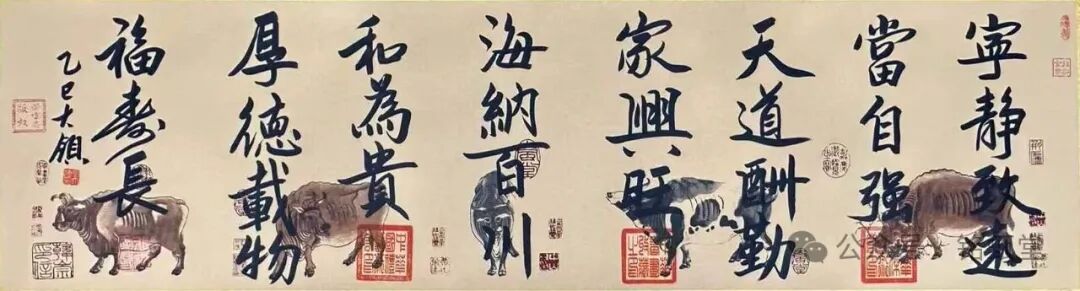 寧静致遠
當自强
天道酬勤
家興旺
海納百川
和為貴
厚德載物
福壽長
乙巳大領
公众号